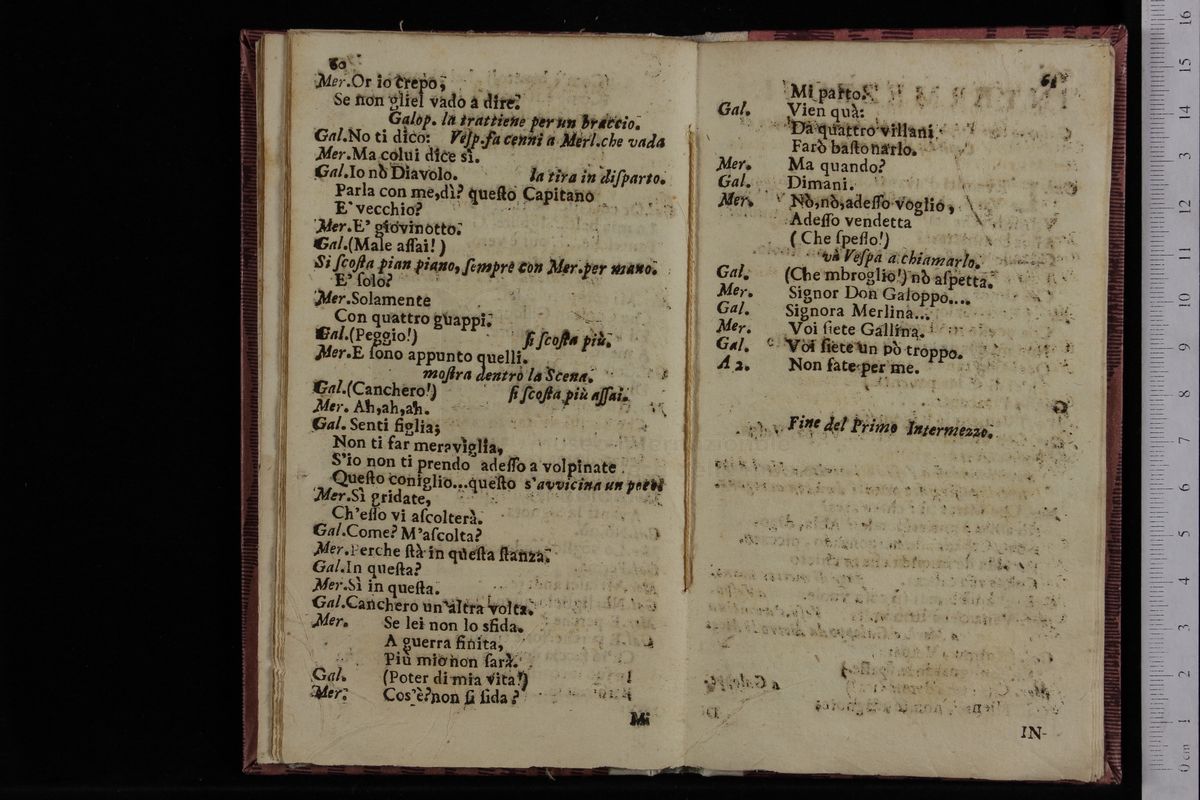 60
Mer.Or io crepo,
Se non gliel vado a dire.
Galop. la trattiene per un braccio.
Gal.No ti dico: Veſp.fa cenni a Merl.che vada
Mer.Ma colui dice sì.
Gal.Io nò Diavolo. la tira in diſparto.
Parla con me,dì? queſto Capitano
E' vecchio?
Mer.E' giovinotto.
Gal.(Male aſſai!)
Si ſcoſta pian piano, ſempre con Mer.per mano.
E' ſolo?
Mer.Solamente
Con quattro guappi.
Gal.(Peggio!) ſi ſcoſta più.
Mer.E ſono appunto quelli.
moſtra dentro la Scena.
Gal.(Canchero!) ſi ſcoſta più aſſai.
Mer. Ah,ah,ah.
Gal. Senti figlia;
Non ti far meraviglia,
S'io non ti prendo adeſſo a volpinate
Queſto coniglio...queſto s'avvicina un poco
Mer.Sì gridate,
Ch'eſſo vi aſcolterà.
Gal.Come? M'aſcolta?
Mer.Perche ſtà in queſta ſtanza.
Gal.In queſta?
Mer.Sì in queſta.
Gal.Canchero un'altra volta.
Mer. Se lei non lo sfida.
A guerra finita,
Più mio non ſarà.
Gal. (Poter di mia vita!)
Mer. Cos'è?non ſi fida?
Mi
61
Mi parto.
Gal. Vien quà:
Da quattro villani
Farò baſtonarlo.
Mer. Ma quando?
Gal. Dimani.
Mer. Nò,nò,adeſſo voglio,
Adeſſo vendetta
(Che ſpeſſo!)
và Veſpa a chiamarlo.
Gal. (Che mbroglio!) nò aſpetta.
Mer. Signor Don Galoppo....
Gal. Signora Merlina...
Mer. Voi ſiete Gallina.
Gal. Voi ſiete un pò troppo.
A 2. Non fate per me.
Fine del Primo Intermezzo.
IN-
16
15
14
13
12
11
10
9
8
7
6
5
4
3
2
1
0 cm